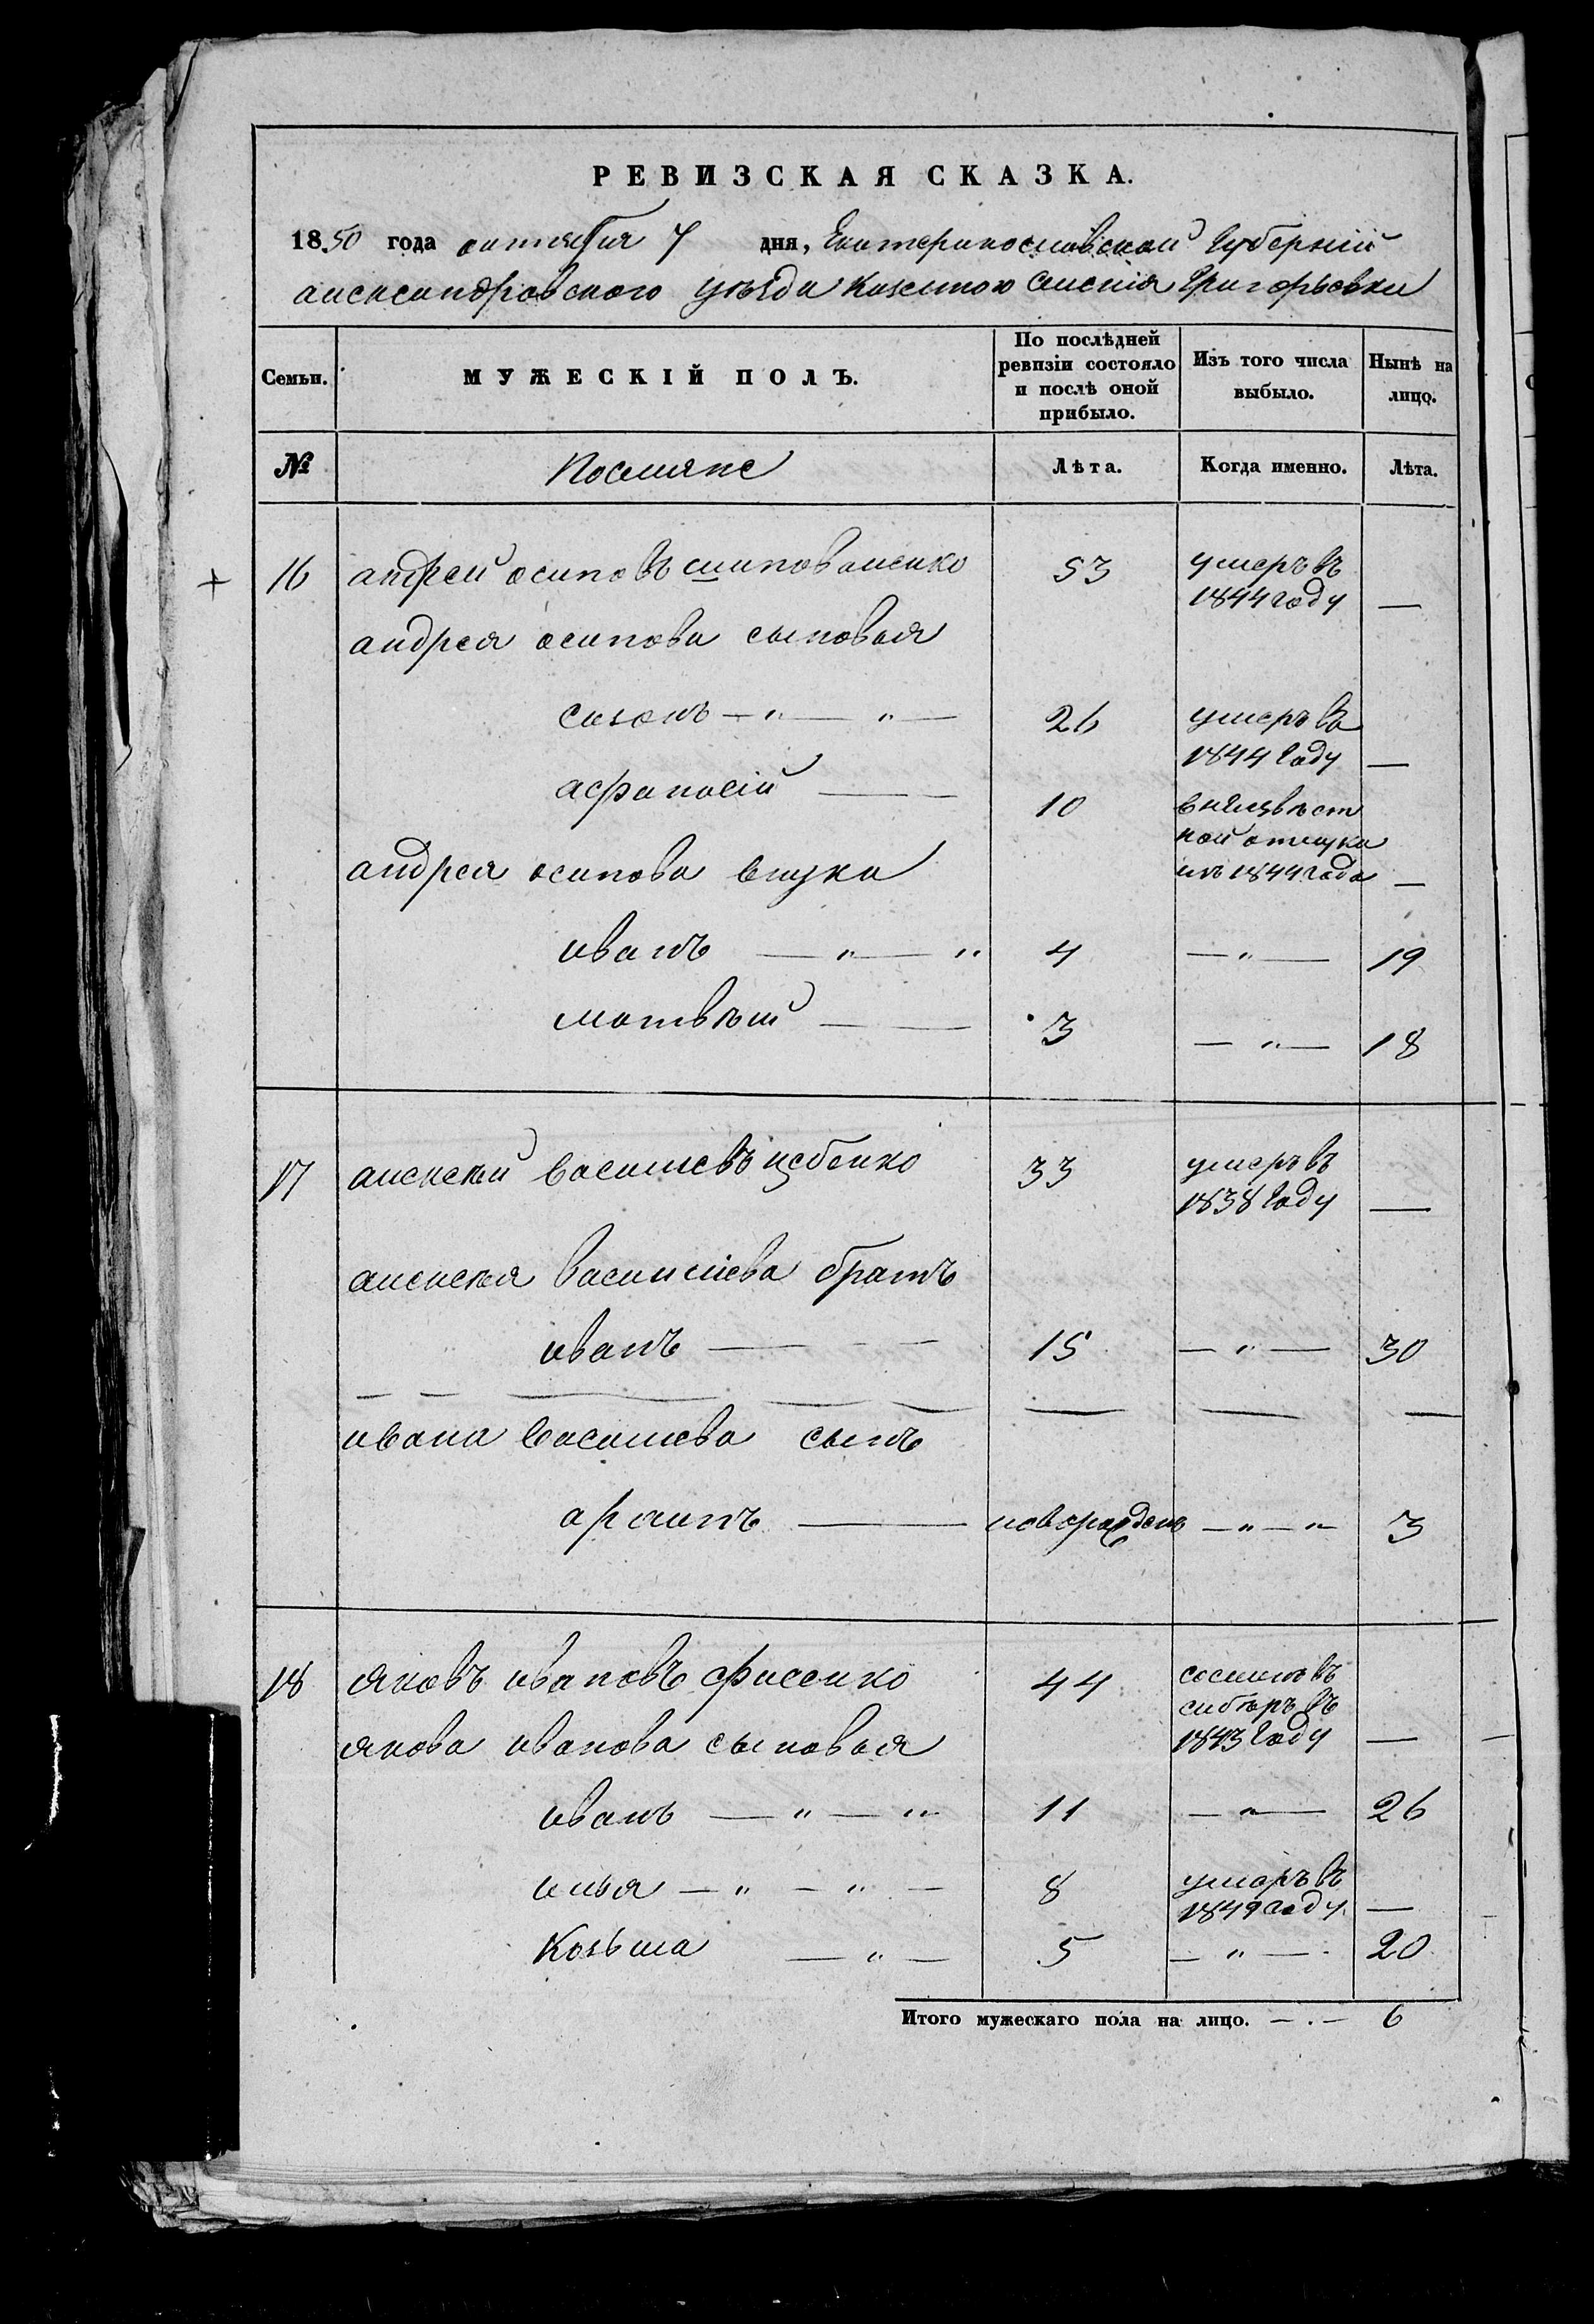 РЕВИЗСКАЯ СКАЗКА.
1850 года октября 7 дня, Екатеринославской Губерніи
александровского уезда казенного селенія Григорьевки
Семьи. МУЖЕСКІЙ ПОЛЪ. По послѣдней ревизіи состояло и послѣ оной прибыло. Изъ того числа выбыло. Нынѣ на лицо.
№ Поселяне Лѣта. Когда именно. Лѣта.
16 андрей осиповъ 53 умеръ въ
1844 году —
андрея осипова сыновья
сазонъ — " — " — 26 умеръ въ
1844 году —
афанасій — 10 в неизвѣст
ной отлучки
съ 1844 года —
андрея осипова внуки
иванъ — " — " 4 — " — 19
матвѣй — 3 — " — 18
17 алексѣй васильевъ 33 умеръ въ
1838 году —
алексѣя васильева братъ
иванъ — 15 — " — 30
ивана васильева сынъ
архипъ — новорожденъ — " — " 3
18 яковъ ивановъ 44 сосланъ въ
сибѣръ въ
1843 году —
якова иванова сыновья
иванъ — " — " 11 — " — 26
илья — " — " — 8 умеръ въ
1849 году —
Козьма — " — 5 — " — 20
Итого мужескаго пола на лицо. — . — 6